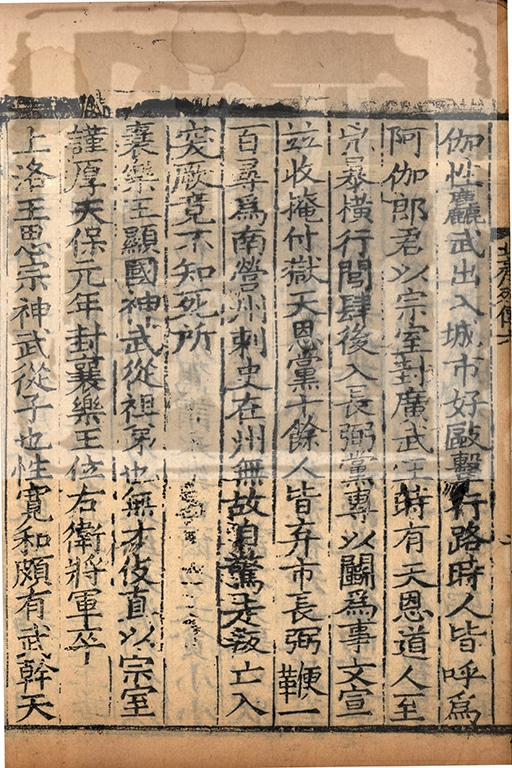 伽性麤武出入城市好毆擊行路時人皆呼爲
阿伽郎君以宗室封廣武王時有天恩道人至
兇暴橫行閭肆後入長弼黨專以鬭爲事文宣
竝收掩付獄天恩黨十餘人皆弃市長弼鞭一
百尋爲南營州刺史在州無故自驚走叛亡入
突厥竟不知死所
襄樂王顯國神武從祖弟也無才伎直以宗室
謹厚天保元年封襄樂王位右衛將軍卒
上洛王思宗神武從子也性寬和頗有武幹天